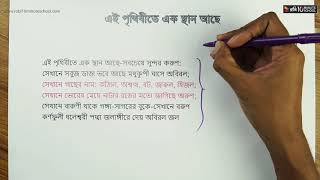 এই পৃথিবীতে এক স্থান আছে
এই পৃথিবীতে এক স্থান আছে-সবচেয়ে সুন্দর করুণ:
সেখানে সবুজ ডাঙা ভরে আছে মধুকূপী ঘাসে অবিরল;
সেখানে গাছের নাম: কাঁঠাল, অশ্বত্থ, বট, জারুল, হিজল;
সেখানে ভোরের মেঘে নাটার রঙের মতো জাগিছে অরুণ;
সেখানে বারুণী থাকে গঙ্গা-সাগরের বুকে-সেখানে বরুণ
কর্ণফুলী ধলেশ্বরী পদ্মা জলাঙ্গীরে দেয় অবিরল জল